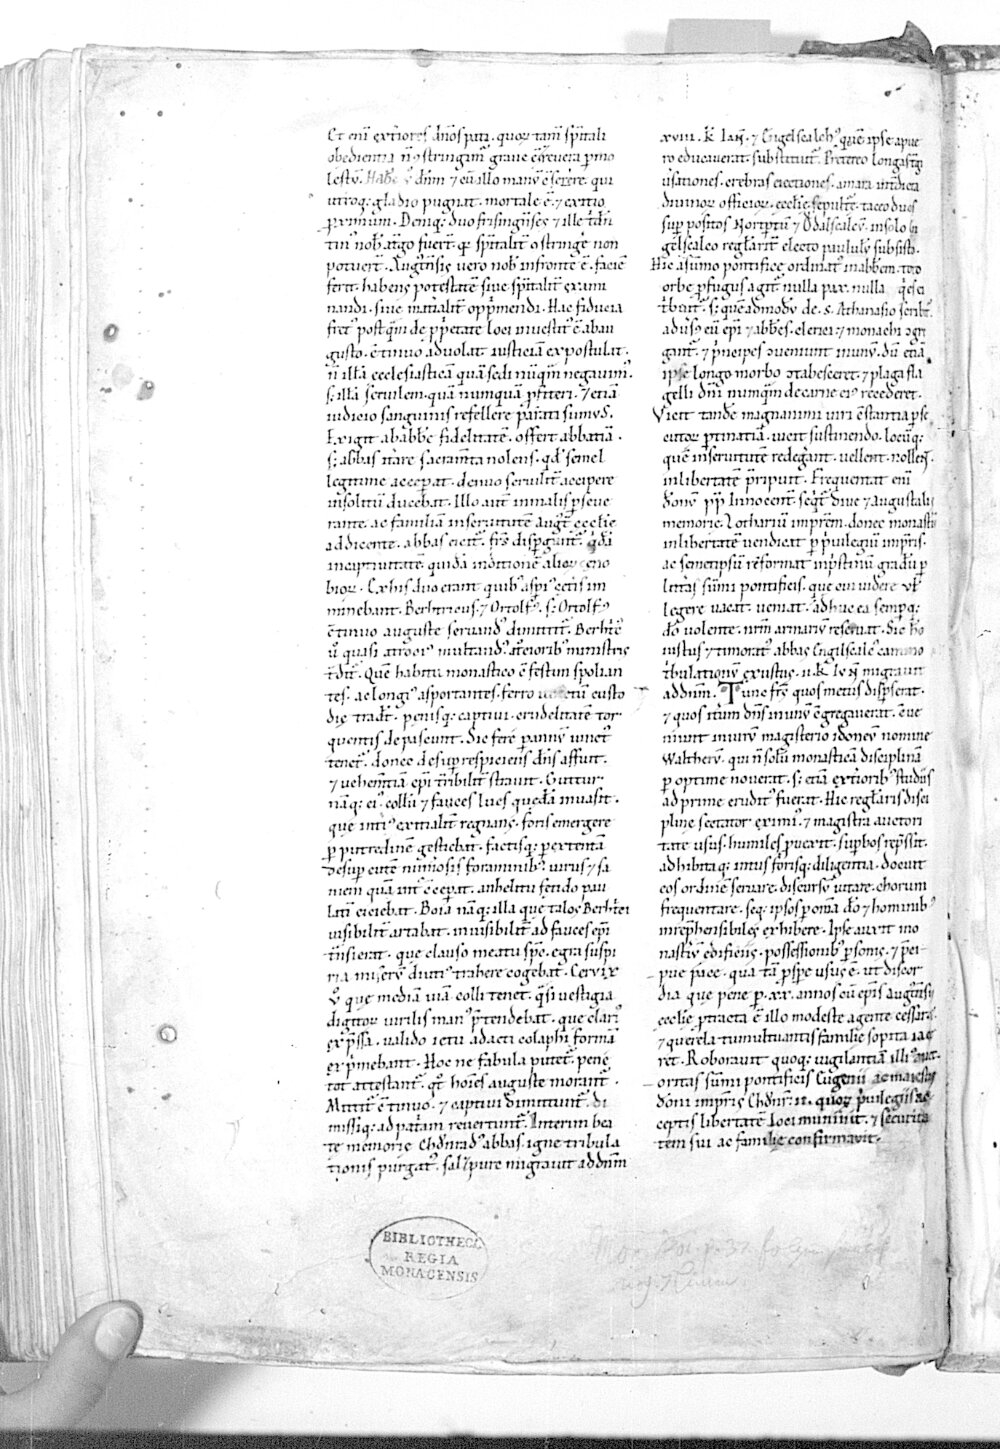 Et eni exteiores dños pati. quoꝝ tam̄ sp̄itali
obedientia n̄ ꝯstringim̄ graue ē reuera ꝓmo
lestū. Habe dn̄m ⁊ eū allo manū ēserere. qui
utroq; gladio pugnat. mortale ē. ⁊ exitio
ꝓximum. Deniq; duo frisingiēses ⁊ ille
potuer̄. Augtensis uero nob infronte ē. faciē
ferit. habens potestatē siue sp̄italit exami
nandi. siue mat̄ialit opp̄mendi. Hac fiducia
fret postqm̄ de ꝓp̄etate loci inuestit̄ ē abau
gusto. ētinuo aduolat iusticiā expostulat.
n̄ illā ecclesiasticā quā sedi nūqm̄ negauim̄.
s; illā seruilem. quā numquā ꝓfiteri. ⁊ etiā
iudicio sanguinis refellere parati sumus.
Exigit ab abbē fidelitatē. offert abbatiā.
s; abbas itare sacram̄ta nolens. qd̄ semel
legitime acceperat. denuo seruilit accipere
insolitū ducebat. Illo aut̄ inmalis ꝑseue
rante. ac familiā inseruitutē augt̄ ecclie
addicente. abbas eicit̄. frs̄ disꝑgunt̄. qdā
incaptiuitatē quidā inditionē alioꝝ ceno
bioꝝ. Exhis duo erant quib aspi ectis im
minebant. Berhtricus. ⁊ Ortolf. s; Ortolf
ētinuo auguste seruand dimittit̄. Berhtc
ū quasi atroci multand. atrociorib ministris
t̄dit̄. Quē habitu monastico ē festim spolian
tes. ac longi asportantes. ferro uectū custo
die tradt̄. penisq; captiui. crudelitatē tor
quentis depascunt. Sic fere ꝑ annū uinct
tenet̄. donec desup respiciens dn̄s affuit.
⁊ uehem̄tiā epi t̄ribilit strauit. Guttur
nāq; ei collū ⁊ fauces lues quedā inuasit.
que inti exitialit regnans. foris emergere
ꝑ putredinē gestiebat. factisq; ꝑ extentā
desup cutē numosis foraminib uirus ⁊ sa
niem quā int ēcepat. anhelitu fetido pau
latī eiciebat. Boia nāq; illa que talos Berhtci
uisibilit artabat. inuisibilit ad fauces epi
t̄nsierat. que clauso meatu spc̄. egra suspi
ria miserū diuti trahere cogebat. Ceruix
ū que mediam uiā colli tenet. qsi uestigia
digitoꝝ uirilis man p̄tendebat. que clari
exp̄ssa. ualido ictu adacti colaphi formā
exp̄mebant. Hoc ne fabula putet̄. pene
tot attestant̄. qt̄ hoīes auguste morant̄.
Mittit̄ ētinuo. ⁊ captiui dimittunt̄. di
missiq; ad patam reuertunt̄. Interim bea
te memorie Chōnrad abbas. igne tribula
tionis purgat. salupure migrauit ad dnm
xviii. k̄ Ian̄. ⁊ Engelscalch quē ipse apue
ro educauerat. substituit̄. Pretereo longas
uisationes. crebras eiectiones. amara int̄dicta
diuinoꝝ officioꝝ. ecclie sepultē. taceo duos
suppositos Nortptū ⁊ Odalscalcū. insolo
gelscalco reglarit electo paululū subsisto.
Hic assumo pontifice ordinat inabbem. toto
orbe ꝓfugus agit̄. nulla pax. nulla
t̄buit̄. s; quē admodū de .s. Athanasio scribit̄.
aduers eū epi ⁊ abbes. clerici ⁊ monachi ꝯgr
gant̄. ⁊ p̄ncipes ꝯueniunt inunū. dū etiā
ipse longo morbo ꝯtabesceret. ⁊ plaga fla
gelli dn̄i numqm̄ decarne ei recederet.
Vicit tandē magnanimi uiri ēstantia ꝑse
cutor ꝑtinatiā. uicit sustinendo. locūq;
quē inseruitutē redegerant. uellent nollent.
inlibertatē p̄ripuit. Frequentat eni
donū pp̄ Innocent̄. seqt̄ diue ⁊ augustalis
memorie Lothariū imprem. donec monastiū
inlibertatē uendicat ꝑ p̄uilegiū impris.
ac semetipsū reformat inp̄stinū gradū ꝑ
litt̄as sūmi pontificis. que cui uidere ul
legere uacat. ueniat. adhuc ea sempq;
dō uolente. nr̄m armariū reseruat. Sic hō
iustus ⁊ timorat abbas Engilscalc camino
t̄bulationū exustus. ii. k̄ Iun̄ migrauit
ad dnm. Tunc frs̄ quos metus dispserat.
⁊ quos itum dns̄ inunū ēgregauerat. ēue
niunt inuirū magisterio idoneū nomine
Waltherū. qui n̄ solū monasticā disciplinā
ꝑoptime nouerat. s; etiā ext̄iorib studiis
ad prime erudit fuerat. Hic reglaris disci
pline sectator eximi. ⁊ magistra auctori
tate usus. humiles ꝓuexit. supbos rep̄ssit.
adhibitaq; intus forisq; diligentia. docuit
eos ordinē seruare. discursū uitare. chorum
frequentare. seq; ipsos ꝑ oma dō ⁊ hominib
inrep̄hensibiles exhibere. Ipse auxit mo
nastiū edificiis. possessionib ꝑsonis. ⁊ p̄ci
pue pace. qua tā ꝓspe usus ē. ut discor
dia que pene ꝑ .xx. annos cū epis augtensis
ecclie ꝓtracta ē illo modeste agente cessaret.
⁊ querela tumultuantis familie sopita iace
ret. Roborauit quoq; uigilantiā illi auct
oritas sūmi pontificis Eugenii ac maiestas
dōni impris Chōnr̄. ii. quoꝝ p̄uilegiis ac
ceptis libertatē loci muniuit. ⁊ securita
tem sui ac familie confirmauit.
BIBLIOTHECA
REGIA
MONACENSIS